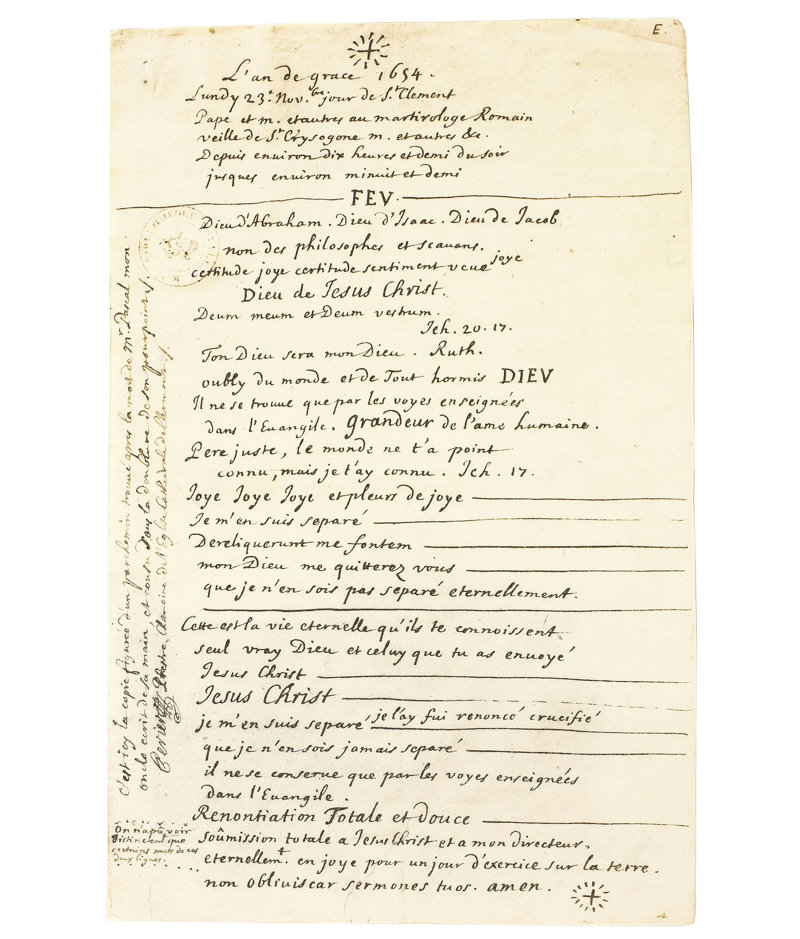 E.
L'an de grace 1654.
Lundy 23.e Nov.bre jour de S.t Clement
Pape et m. et autres au martirologe Romain
veille de S.t Crysogone m. et autres &c.
Depuis environ dix heures et demi du soir
jusques environ minuit et demi
FEV.
Dieu d'Abraham. Dieu d'Isaac. Dieu de Jacob
non des philosophes et scavans.
certitude joye certitude sentiment veue joye
Dieu de Jesus Christ.
Deum meum et Deum vestrum.
Jeh. 20. 17.
Ton Dieu sera mon Dieu. Ruth.
oubly du monde et de Tout hormis DIEV
Il ne se trouve que par les voyes enseignées
dans l'Euangile. grandeur de l'ame humaine.
Pere juste, le monde ne t'a point
connu, mais je t'ay connu. Jeh. 17.
Joye Joye Joye et pleurs de joye
Je m'en suis separé
Dereliquerunt me fontem
mon Dieu me quitterez vous
que je n'en sois pas separé eternellement.
Cette est la vie eternelle qu'ils te connoissent
seul vray Dieu et celuy que tu as envoyé
Jesus Christ
Jesus Christ
je m'en suis separé je l'ay fui renoncé crucifié
que je n'en sois jamais separé
il ne se conserve que par les voyes enseignées
dans l'Euangile.
Renontiation Totale et douce
soûmission totale a Jesus Christ et a mon directeur.
eternellem.t en joye pour un jour d'exercice sur la terre.
non obliviscar sermones tuos. amen.
c'est icy la copie figurée d'un parchemin trouvé apres la mort de Mr. Pascal mon
oncle ecrit de sa main, et cousu dans la doublure de son pourpoint
Perier Prestre Chanoine de l'Eglise Cathedrale de Clermont
On n'a pû voir
distinctem.t que
certains mots de ces
deux lignes.